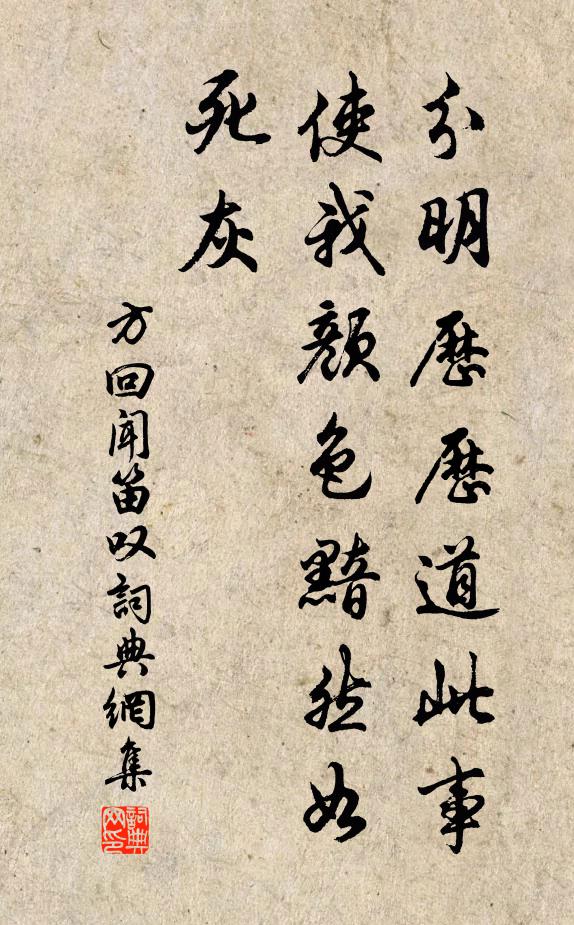 分明歷歷道此事
使我顏色黯然如
死灰
方回聞笛叹詞典網集
詞典网印